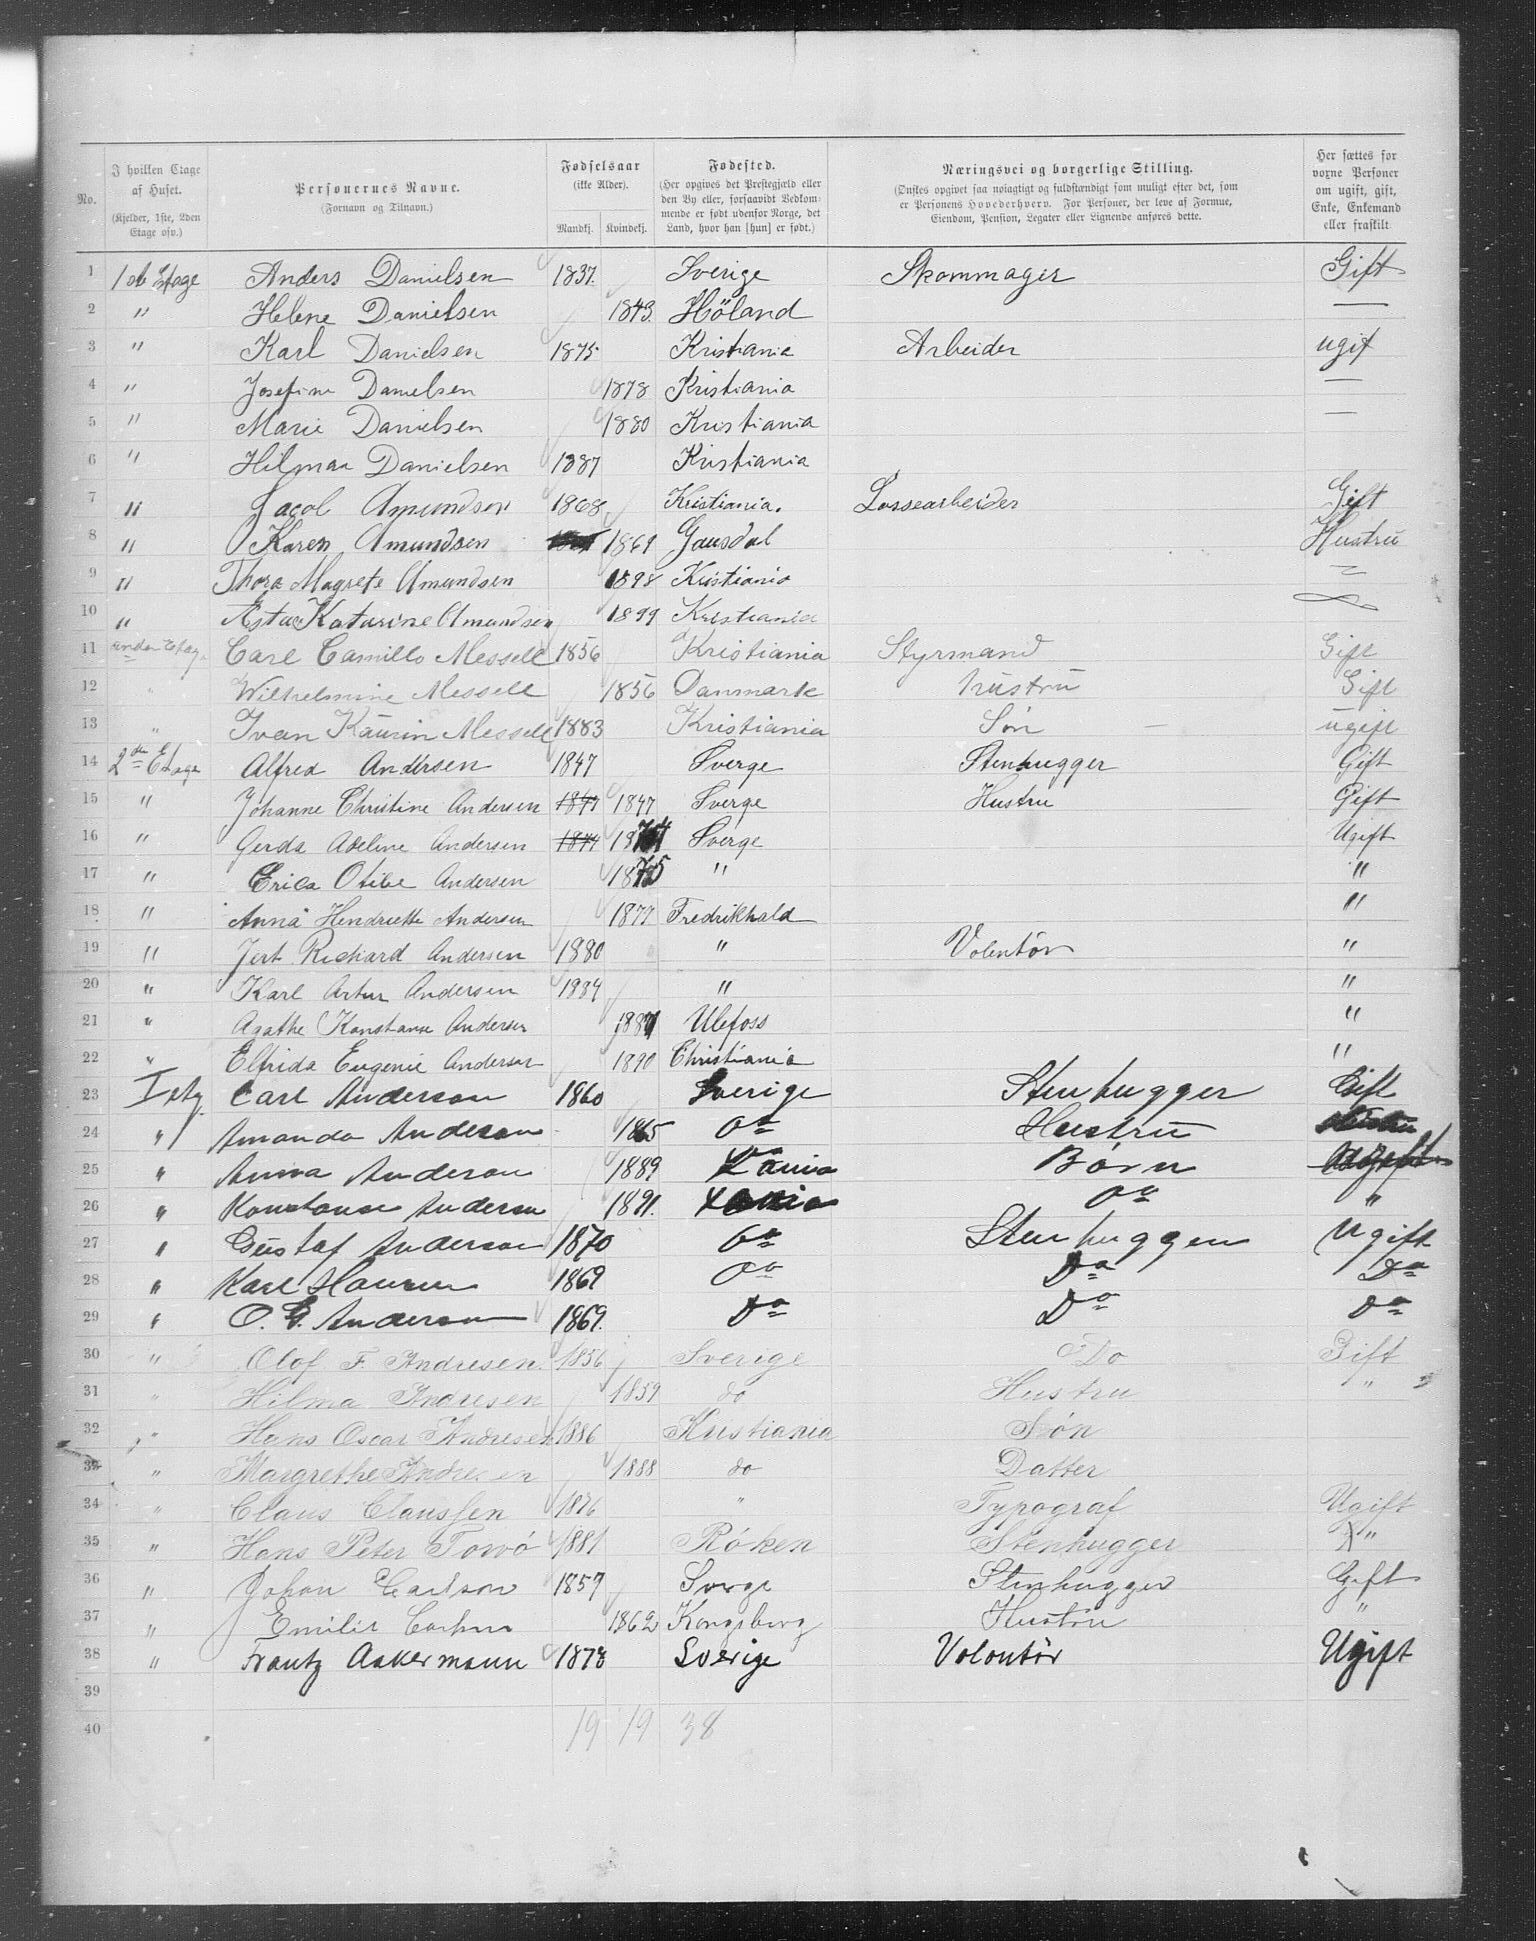 No. I hvilken Etage af Huset. (Kjelder, 1ste, 2den Etage osv.) Personernes Navne. (Fornavn og Tilnavn.) Fødselsaar (ikke Alder). Mandkj. Kvindekj. Fødested. (Her opgives det Prestegjæld eller den By eller, forsaavidt Vedkommende er født udenfor Norge, det Land, hvor han [hun] er født.) Næringsvei og borgerlige Stilling. (Ønskes opgivet saa nøiagtigt og fuldstændigt som muligt efter det, som er Personens Hovederhverv. For Personer, der leve af Formue, Eiendom, Pension, Legater eller Lignende anføres dette. Her sættes for voxne Personer om ugift, gift, Enke, Enkemand eller fraskilt
1 1ste Etage Anders Danielsen 1837. Sverige Skommager Gift
2 " Helene Danielsen 1843. Höland —
3 " Karl Danielsen 1875 Kristiania Arbeider ugif
4 " Josefine Danielsen 1878 Kristiania —
5 " Marie Danielsen 1880 Kristiania —
6 " Hilmar Danielsen 1887 Kristiania
7 " Jacob Amundsen 1868 Kristiania. Lossearbeider Gift
8 " Karen Amundsen 1869 Gausdal Hustru
9 " Thora Magrete Amundsen 1898 Kristiania
10 " Katarine Amundsen 1899 Kristiania
11 anden Etage Carl Camillo Messell 1856 Kristiania Styrmand Gift
12 " Wilhelmine Messell 1856 Danmark hustru Gift
13 " Ivan Kaurin Messell 1883 Kristiania Søn — ugift
14 2den Etage Alfred Andersen 1847 Sverge Stenhugger Gift
15 " Johanne Christine Andersen 1847 1847 Sverge Hustru Gift
16 " Gerda Adeline Andersen 1874 1874 Sverge Ugift
17 " Erica Otilie Andersen 1875 " "
18 " Anna Hendriette Andersen 1877 Fredrikhald "
19 " Jert Richard Andersen 1880 " Volentör "
20 " Karl Artur Andersen 1884 " "
21 " Agathe Konstanse Andersen 1887 Ulefoss "
22 " Elfrida Eugenie Andersen 1890 Christiania "
23 I etg. Carl Anderson 1860 Sverige Stenhugger Gift
24 " Amanda Anderson 1865 Do Hustru
25 " Anna Anderson 1889 Xania Børn
26 " Konstanse Anderson 1891. Xania Do "
27 " Gustaf Anderson 1870 Do Stenhuggen Ugift
28 " Karl Hansen 1869 Do Do Do
29 " O. G. Anderson 1869. Do Do Do
30 " Olof F. Andresen 1856 Sverige Do Gift
31 " Hilma Andresen 1859 do Hustru "
32 " Hans Oscar Andresen 1886 Kristiania Søn
33 " Margrethe Andresen 1888 do Datter
34 " Claus Claussen 1876 " Typograf Ugift
35 " Hans Peter Tovvö 1881 Røken Stenhugger "
36 " Johan Carlson 1857 Sverge Stenhugger Gift
37 " Emilie 1862 Kongsberg Hustru "
38 " Frantz Aakermann 1878 Sverige Volontör Ugift
39
40 19 19 38